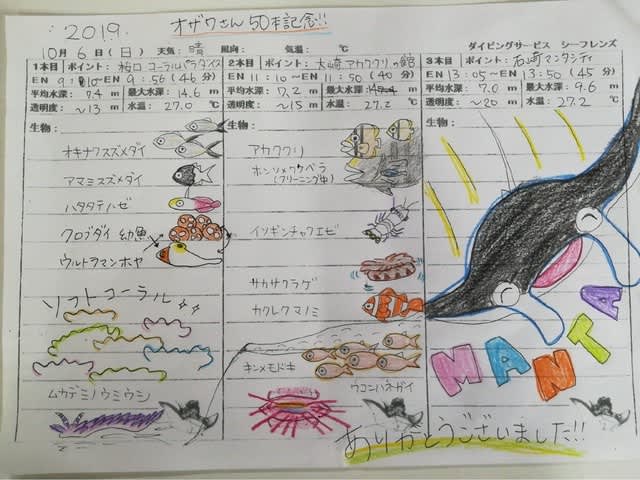 2019. オザワさん50本記念!!
10月6日(日) 天気:晴 風向: 気温: ℃ ダイビングサービス シーフレンズ
1本目 ポイント: コーラルパラダイス
EN 9:10~EN 9:56(46分)
平均水深: 7.4 m 最大水深: 14.6 m
透明度: ~13 m 水温: 27.0 ℃
生物:
オキナワスズメダイ
アマミスズメダイ
ハタタテハゼ
クロブダイ 幼魚
ウルトラマンホヤ
ソフトコーラル
ムカデミノウミウシ
2本目 ポイント: 大崎アカククリの館
EN 11:10~EN 11:50(40分)
平均水深: 7.2 m 最大水深: m
透明度: ~15 m 水温: 27.2 ℃
生物:
アカククリ
ホンソメワケベラ
(クリーニング中)
イソギンチャクエビ
サカサクラゲ
カクレクマノミ
キンメモドキ
ウコンハネガイ
3本目 ポイント: 石崎マンタシティ
EN 13:05~EN 13:50(45分)
平均水深: 7.0 m 最大水深: 9.6 m
透明度: ~20 m 水温: 27.2 ℃
生物:
MANTA
ありがとうございました!!